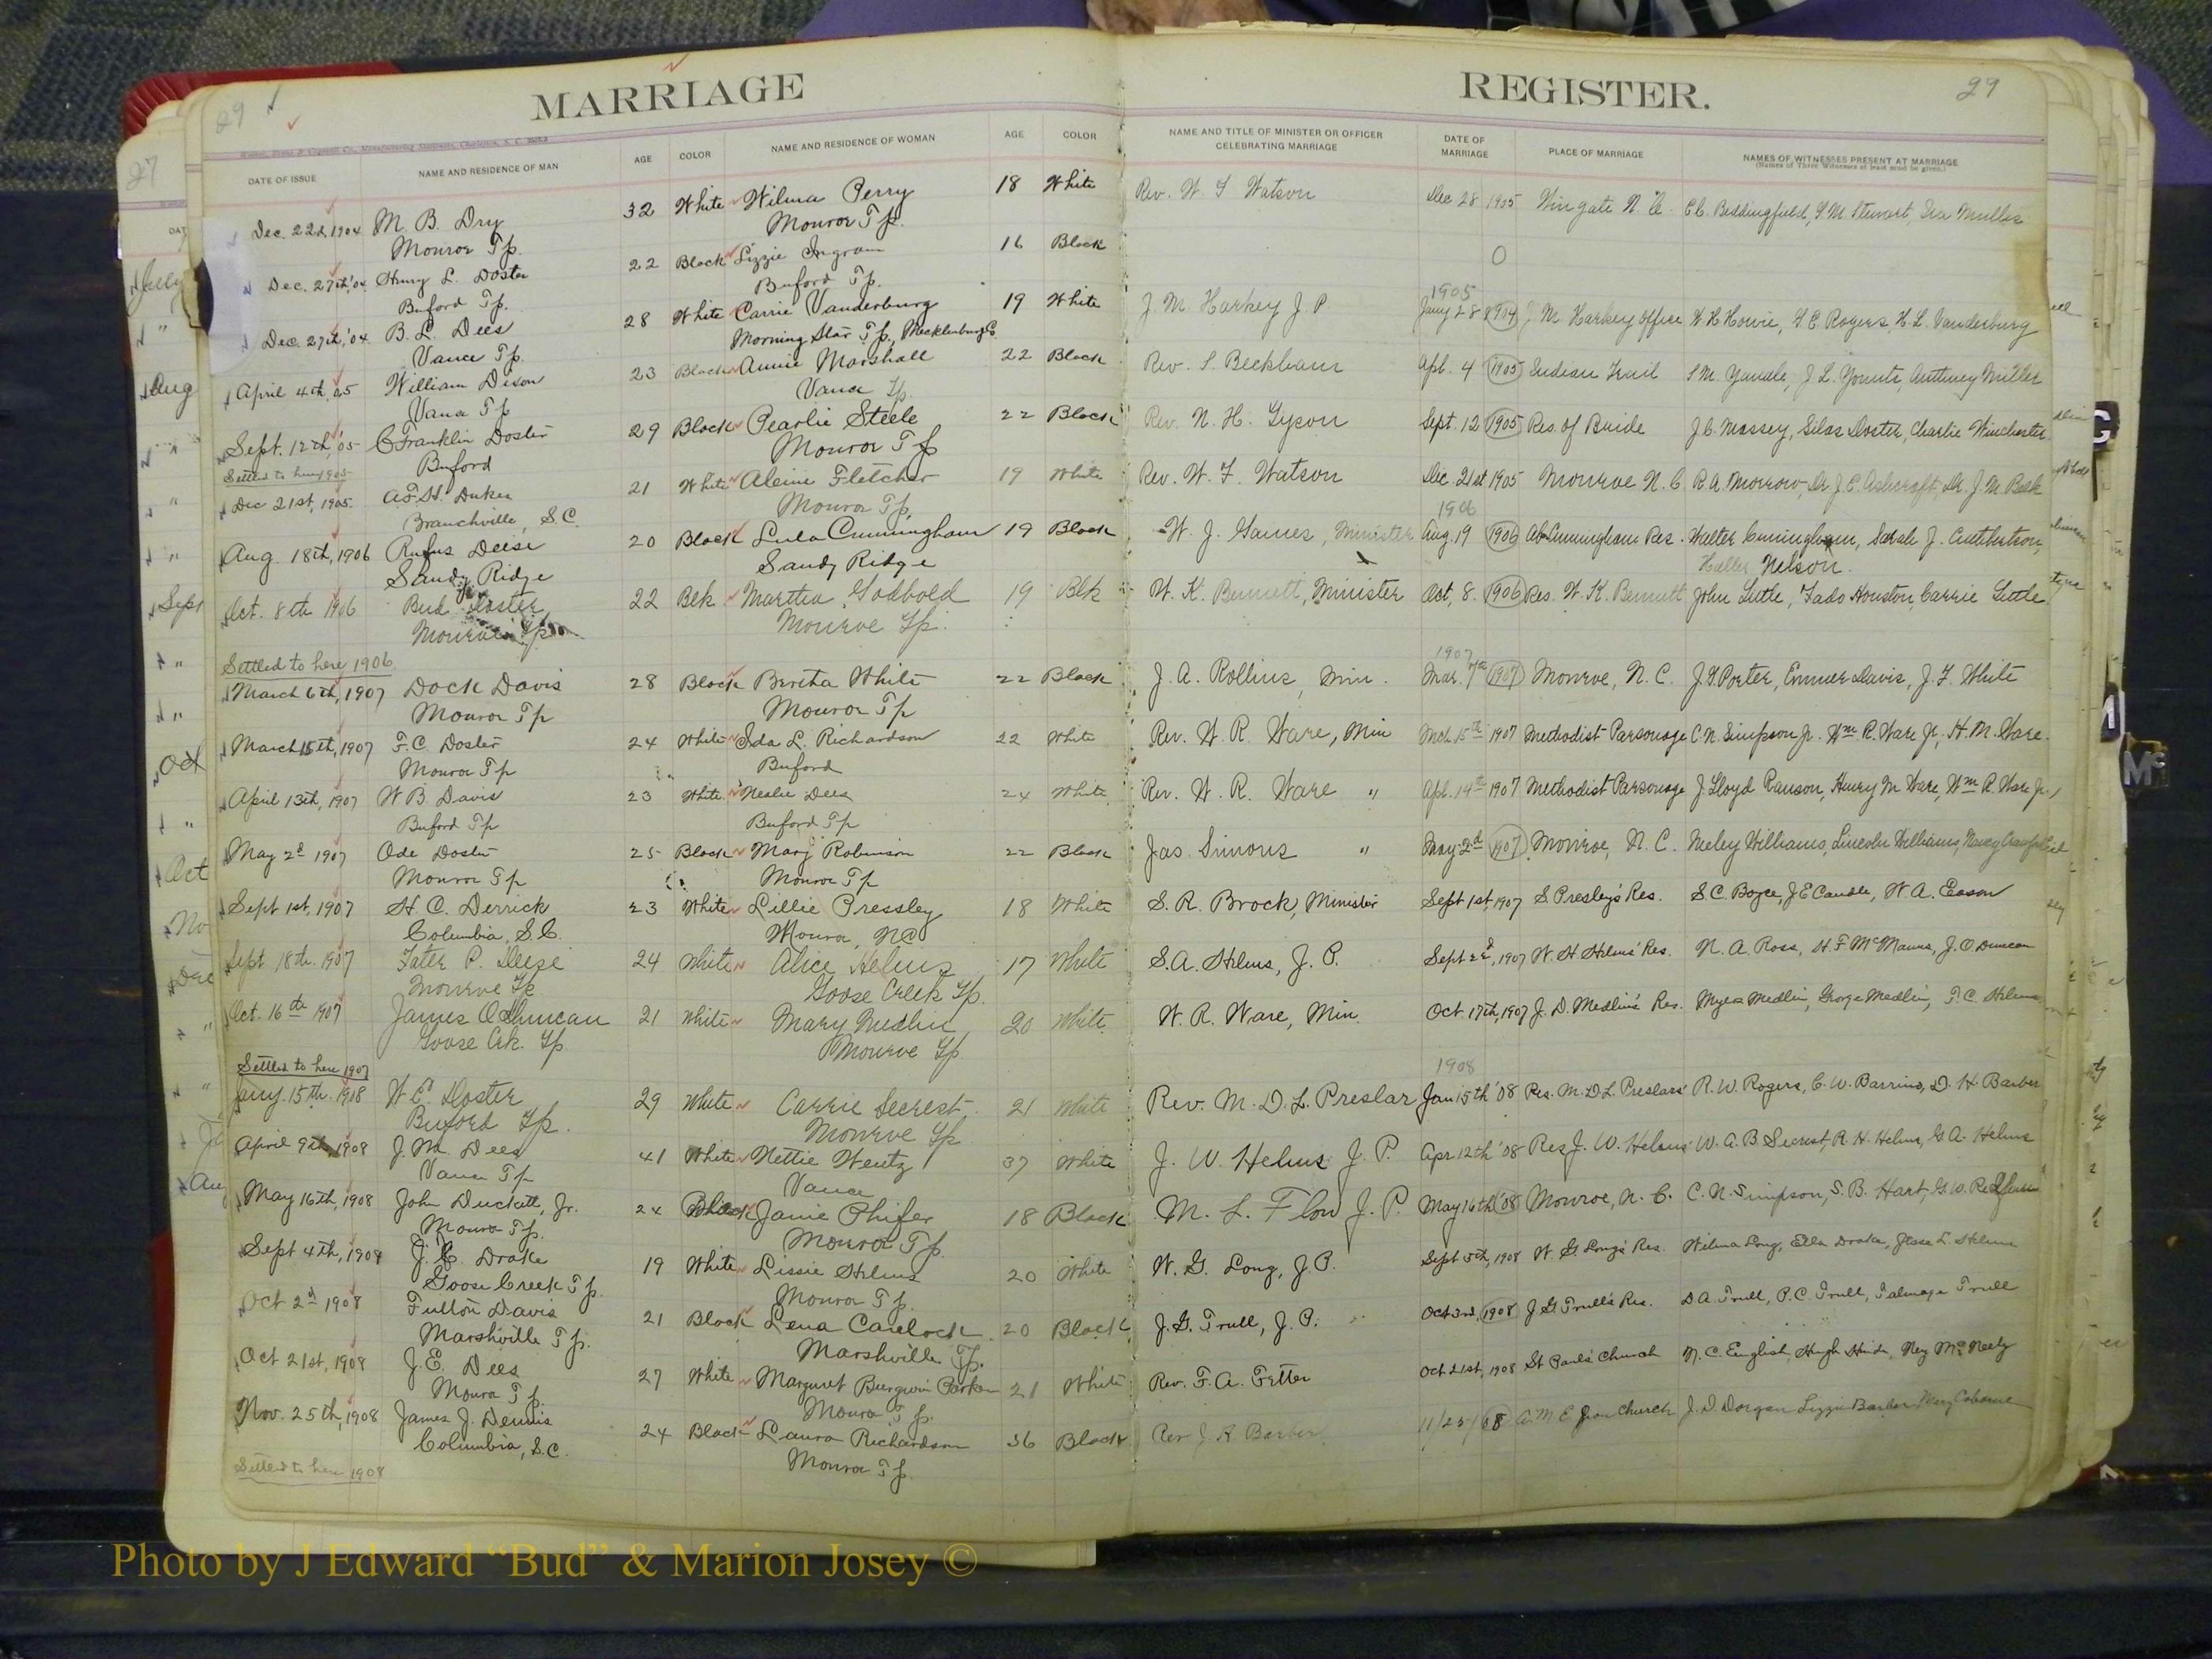 MARRIAGE REGISTER.
29 29
27
DATE OF ISSUE NAME AND RESIDENCE OF MAN AGE COLOR NAME AND RESIDENCE OF WOMAN AGE COLOR NAME AND TITLE OF MINISTER OR OFFICER CELEBRATING MARRIAGE DATE OF MARRIAGE PLACE OF MARRIAGE NAMES OF WITNESSES PRESENT AT MARRIAGE
(Names of Three Witnesses at least must be given.)
Dec. 22d, 1904 M. B. Dry 32 White Wilma Perry 18 White Rev. W. F Watson Dec 28 1905 Wingate N. C. C.C. Beddingfield, S.M. Stewart, Ira Mullis
Monroe Tp. Monroe Tp.
Dec. 27th, '04 Henry L. Doster 22 Black Lizzie Ingram 16 Black 0
Buford Tp. Buford Tp.
1905
Dec. 27th, '04 B. L. Dees 28 White Carrie Vanderburg 19 White J. M. Harkey J P Jany 28 1904 J. M Harkey Office W. H Howie, G. C. Rogers, H. L. Vanderburg
Vance Tp. Morning Star Tp., Mecklenburg Co
April 4th, 05 William Dixon 23 Black Annie Marshall 22 Black Rev. S. Beckham Apl. 4 1905 Indian Trail S M. Yandle, J. L. Yountz, Anthney Miller
Vance Tp Vance Tp.
Sept. 12th, '05 C Franklin Doster 29 Black Pearlie Steele 22 Black Rev. N. H. Tyson Sept. 12 1905 Res. of Bride J. C. Massey, Silas Doster, Charlie Winchester
Settled to here 1905 Buford Monroe Tp
Dec 21st, 1905 A.F.H. Dukes 21 White Aleine Fletcher 19 White Rev. W. F. Watson Dec. 21st 1905 Monroe N. C R. A. Morrow, Dr J. E. Ashcraft, Dr. J. M. Belk
Branchville, S.C. Monroe Tp.
1906
Aug. 18th, 1906 Rufus Deese 20 Black Lula Cunningham 19 Black W. J. Gaines, Minister Aug. 19 1906 Ab Cunningham Res. Walter Cuningham, Sarah J. Cuthbertson,
Sandy Ridge Sandy Ridge Nelson.
Oct. 8th 1906 Bud Doster 22 Blk Martha Godbold 19 Blk W. K. Bennett, Minister Oct, 8. 1906 Res. W. K. Bennett John Little, Fado Houston, Carrie Little
Monroe Tp Monroe Tp.
Settled to here 1906
1907
March 6th, 1907 Dock Davis 28 Black Bertha White 22 Black J. A. Rollins, Min. Mar. 7th 1907 Monroe, N. C. J. G. Porter, Emmer Davis, J. F. White
Monroe Tp Monroe Tp
March 15th, 1907 F. C. Doster 24 White Ida L. Richardson 22 White Rev. W. R. Ware, Min Mch 15th 1907 Methodist Parsonage C. N. Simpson Jr. Wm. R. Ware Jr., H. M. Ware.
Monroe Tp Buford
April 13th, 1907 W. B. Davis 23 White Neelie Dees 24 White Rev. W. R. Ware " Apl. 14th 1907 Methodist Parsonage J. Lloyd Ranson, Henry M Ware, Wm R. Ware Jr.,
Buford Tp Buford Tp
May 2d 1907 Ode Doster 25 Black Mary Robinson 22 Black Jas. Simons " May 2d 1907 Monroe, N. C. Neeley Williams, Lincoln Williams,
Monroe Tp Monroe Tp
Sept 1st, 1907 H. C. Derrick 23 White Lillie Pressley 18 White S. R. Brock, Minister Sept 1st, 1907 S. Presley's Res. S. C. Boyce, J E Caudle, W. A. Eason
Columbia, S.C. Monroe, N.C.
Sept 18th. 1907 Tater P. Deese 24 White Alice Helms 17 White S. A. Helms, J. P. Sept 22d, 1907 W. H Helms' Res. N. A. Ross, H. F McManus, J. O Duncan
Monroe Tp Goose Creek Tp.
Oct. 16th 1907 James O. Duncan 21 White Mary Medlin 20 White W. R. Ware, Min. Oct. 17th, 1907 J. D. Medlin's Res. Myrea Medlin, George Medlin, T. C. Helms
Goose Crk. Tp Monroe Tp
Settled to here 1907
1908
Jany. 15th. 1908 W. C. Doster 29 White Carrie Secrest, 21 White Rev. M. D. L. Preslar Jan 15th '08 Res. M. D. L. Preslars' R. W. Rogers, C. W. Barrino, D. H. Barber
Buford Tp. Monroe Tp
April 9th, 1908 J. M. Dees 41 White Nettie Wentz 37 White J. W. Helms J. P. Apr 12th '08 Res J. W. Helms' W. A. B Secrest, R. H. Helms, G. A. Helms
Vance Tp Vance
May 16th, 1908 John Duckett, Jr. 24 Black Janie Phifer 18 Black M. L. Flow J. P. May 16th '08 Monroe, N. C. C. N. Simpson, S. B. Hart, G. W. Redfearn
Monroe Tp. Monroe Tp.
Sept 4th, 1908 J. C. Drake 19 White Lissie Helms 20 White W. G. Long, J. P. Sept 5th, 1908 W. G. Long's Res. Wilma Long, Ella Drake, Jesse L. Helms
Goose Creek Tp. Monroe Tp.
Oct 2d 1908 Fulton Davis 21 Black Lena Carelock 20 Black J. G. Trull, J. P. Oct 3rd, 1908 J. G Trull's Res. D A. Trull, P. C. Trull, Talmage Trull
Marshville Tp. Marshville Tp.
Oct 21st, 1908 J. E. Dees 27 White Margaret Burgwin Parker 21 White Rev. F. A. Fetter Oct 21st, 1908 St Paul's Church N. C. English, Hugh Hinde, Ney McNeely
Monroe Tp. Monroe Tp.
Nov. 25th, 1908 James J. Dennis 24 Black Laura Richardson 36 Black Rev J. R Barber 11/25/08 A. M E Zion Church J. D. Dorgan Lizzie Barber Mary
Columbia, S.C. Monroe Tp.
Settled to here 1908
Photo by J Edward “Bud” & Marion Josey ©